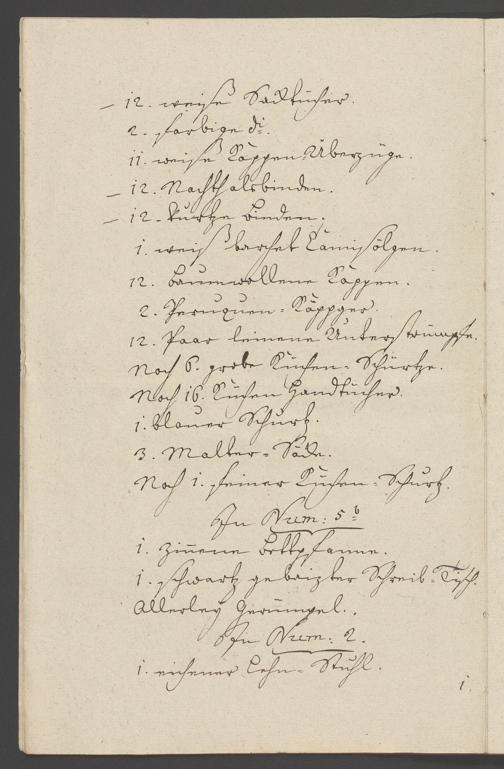 – 12. weiße Sacktücher.
2. farbige di.
11. weiße Kappen-Überzüge.
– 12. Nachthalsbinden.
– 12. kurtze Binden.
1. weiß barchet Camisölgen.
12. baumwollene Kappen.
2. Peruquen-Käppger.
12. Paar leinene Unterstrümpfe.
Noch 6. grobe Küchen-Schürtze.
Noch 16. Küchen Handtücher.
1. blauer Schurtz.
3. Malter-Säcke.
Noch 1. feiner Küchen-Schurtz.
In Num: 5b
1. zinnene Bettpfanne.
1. schwartz gebaizter Schreib-Tisch.
Allerley Gerümpel.
In Num: 2.
1. eichener Lehn-Stuhl.
1.